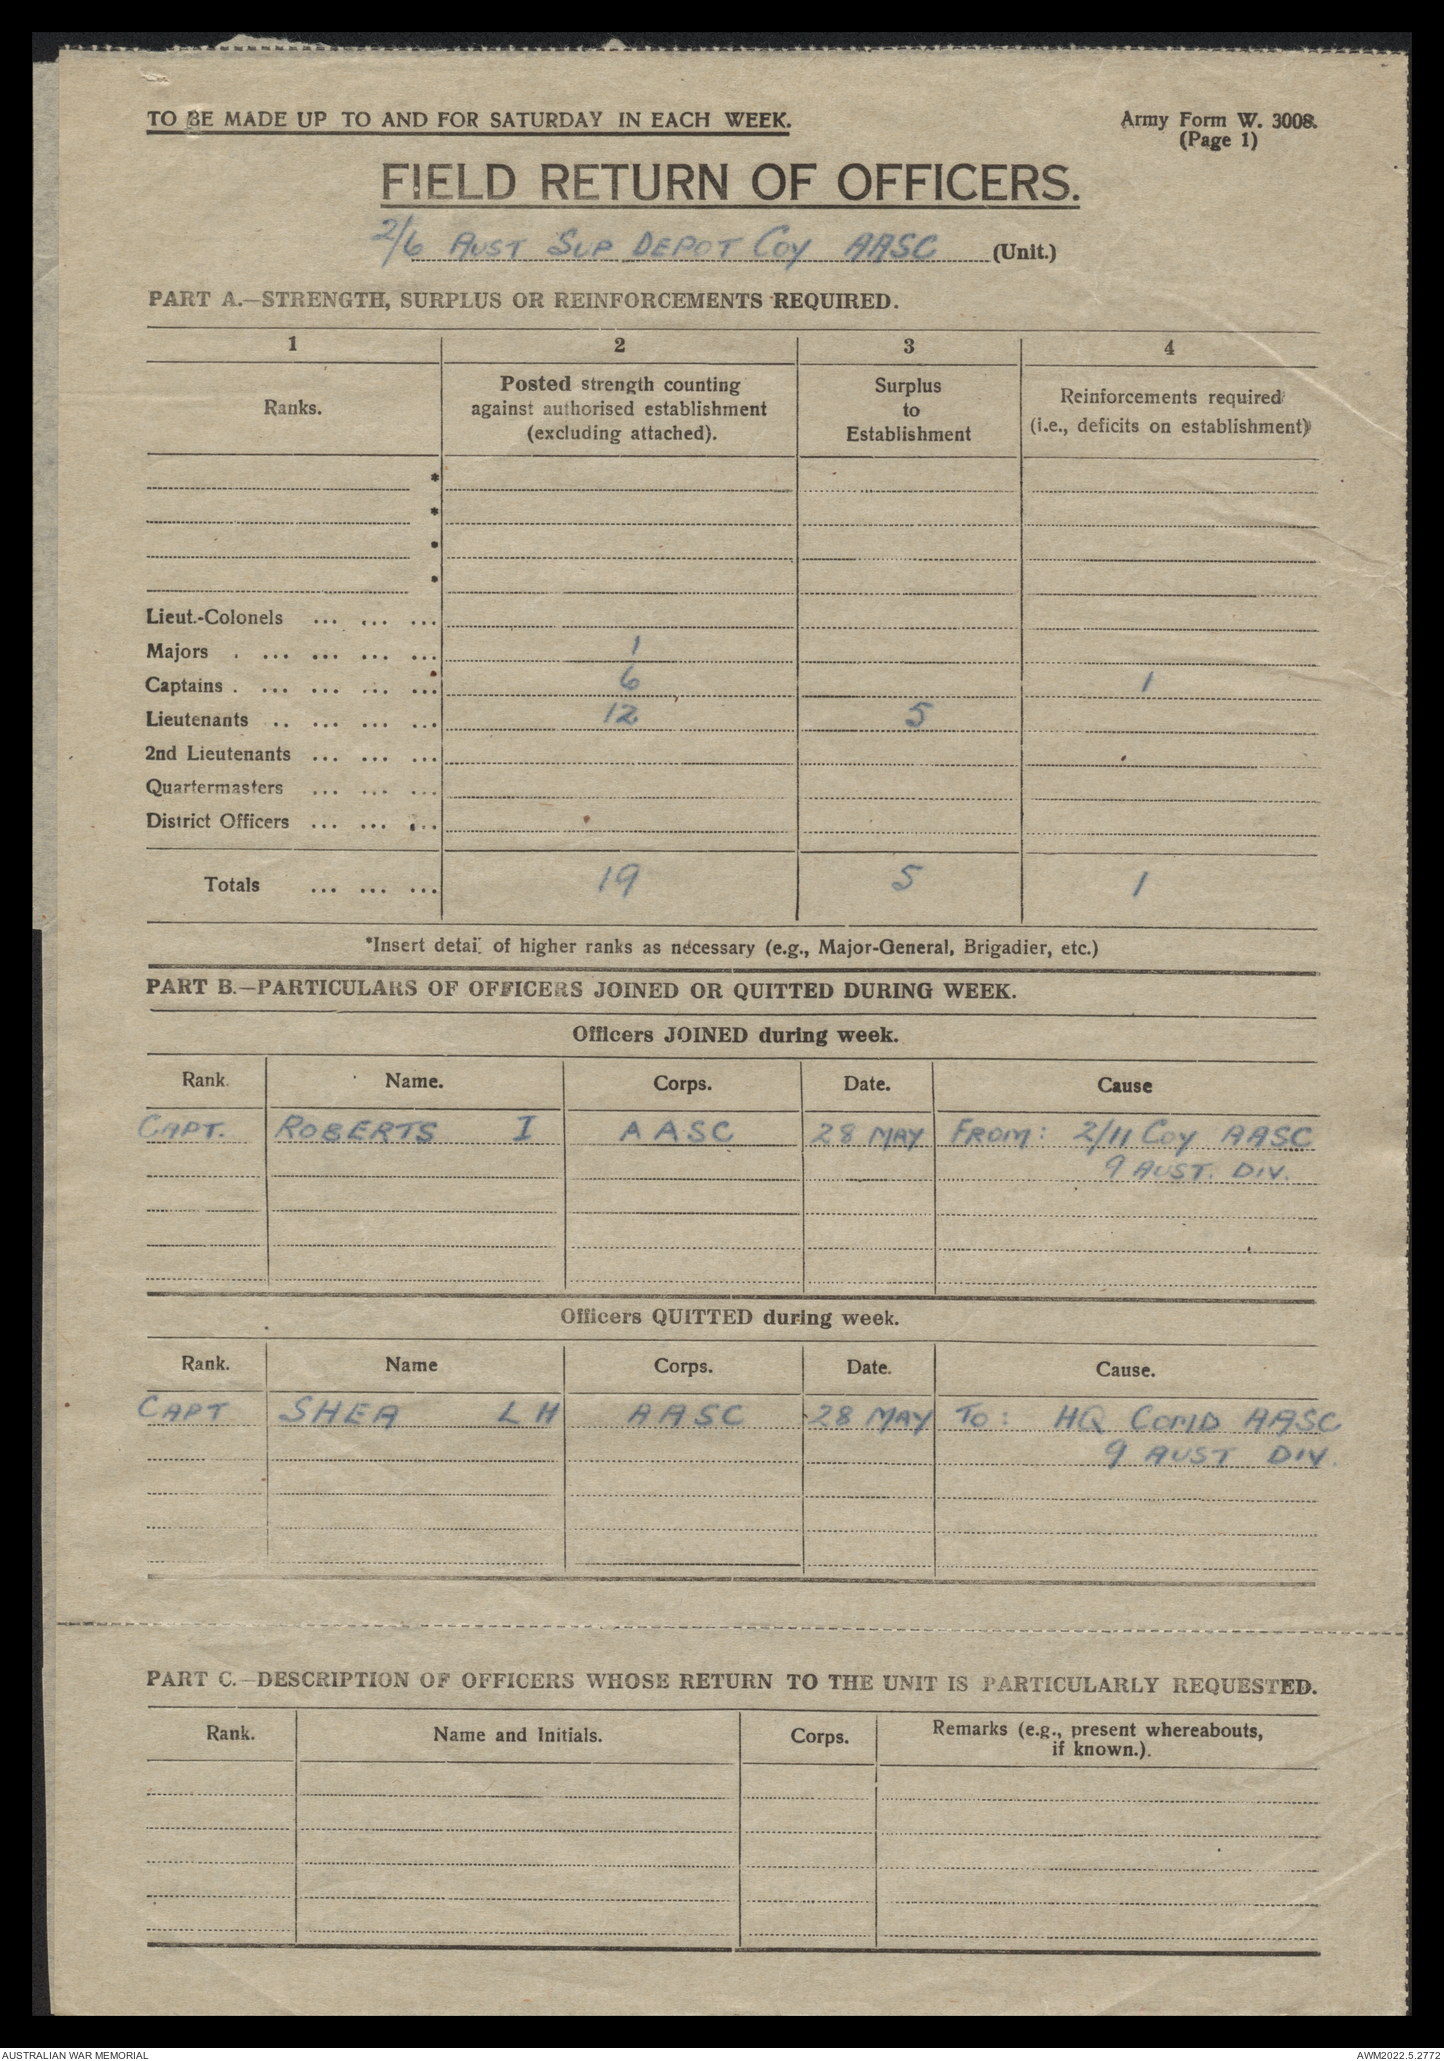 TO BE MADE UP TO AND FOR SATURDAY IN EACH WEEK.
Army Form W. 3008.
(Page 1)
FIELD RETURN OF OFFICERS.
2/6 AUST SUP DEPOT COY AASC (Unit.)
PART A.—STRENGTH, SURPLUS OR REINFORCEMENTS REQUIRED.
1 2 3 4
Ranks.
Posted strength counting
against authorised establishment
(excluding attached).
Surplus
to
Establishment
Reinforcements required
(i.e., deficits on establishment)
*
*
*
*
Lieut.-Colonels ... ... ...
Majors . ... ... ... ... 1
Captains . ... ... ... ... 6 1
Lieutenants .. ... ... ... 12 5
2nd Lieutenants ... ... ...
Quartermasters ... ... ...
District Officers ... ... ...
Totals ... ... ... 19 5 1
*Insert detail of higher ranks as necessary (e.g., Major-General, Brigadier, etc.)
PART B.—PARTICULARS OF OFFICERS JOINED OR QUITTED DURING WEEK.
Officers JOINED during week.
Rank. Name. Corps. Date. Cause
CAPT. ROBERTS I AASC 28 MAY FROM: 2/11 COY AASC
9 AUST. DIV.
Officers QUITTED during week.
Rank. Name Corps. Date. Cause.
CAPT SHEA L H AASC 28 MAY TO: HQ COMD AASC
9 AUST DIV.
PART C.—DESCRIPTION OF OFFICERS WHOSE RETURN TO THE UNIT IS PARTICULARLY REQUESTED.
Rank. Name and Initials. Corps. Remarks (e.g., present whereabouts,
if known.).
AUSTRALIAN WAR MEMORIAL
AWM2022.5.2772